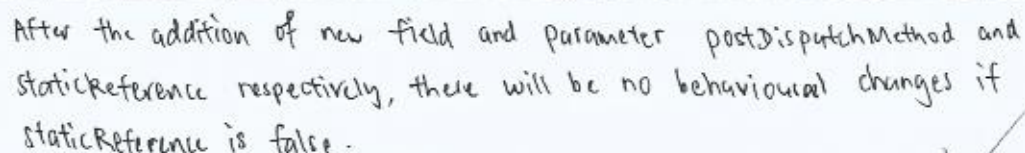 After the addition of new field and parameter postDispatchMethod and
staticReference respectively, there will be no behavioural changes if
staticReference is false.